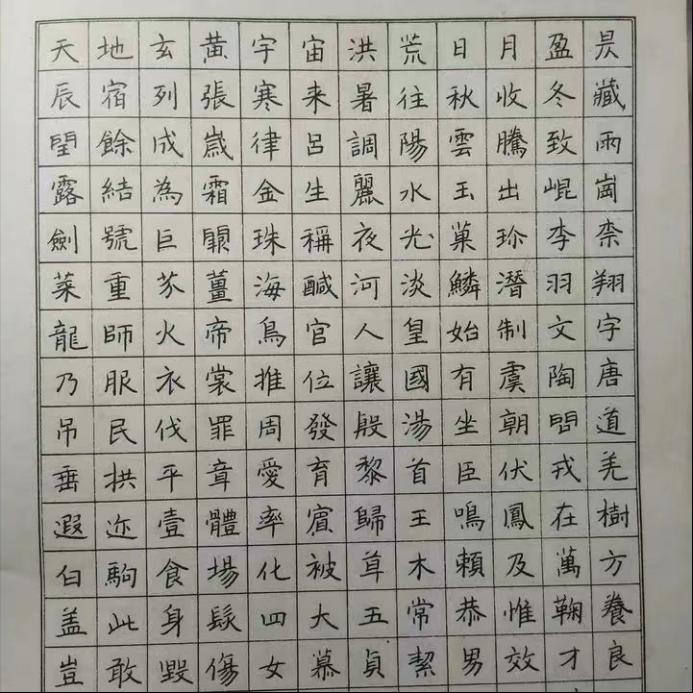 天地玄黃宇宙洪荒日月盈昃
辰宿列張寒来暑往秋收冬藏
閏餘成歲律呂調陽雲騰致雨
露結為霜金生麗水玉出崐崗
劍號巨闕珠稱夜光菓珍李柰
菜重芥薑海鹹河淡鱗潛羽翔
龍師火帝鳥官人皇始制文字
乃服衣裳推位讓國有虞陶唐
吊民伐罪周發殷湯坐朝問道
垂拱平章愛育黎首臣伏戎羌
遐迩壹體率賓歸王鳴鳳在樹
白駒食場化被草木賴及萬方
盖此身髮四大五常恭惟鞠養
豈敢毀傷女慕貞潔男效才良